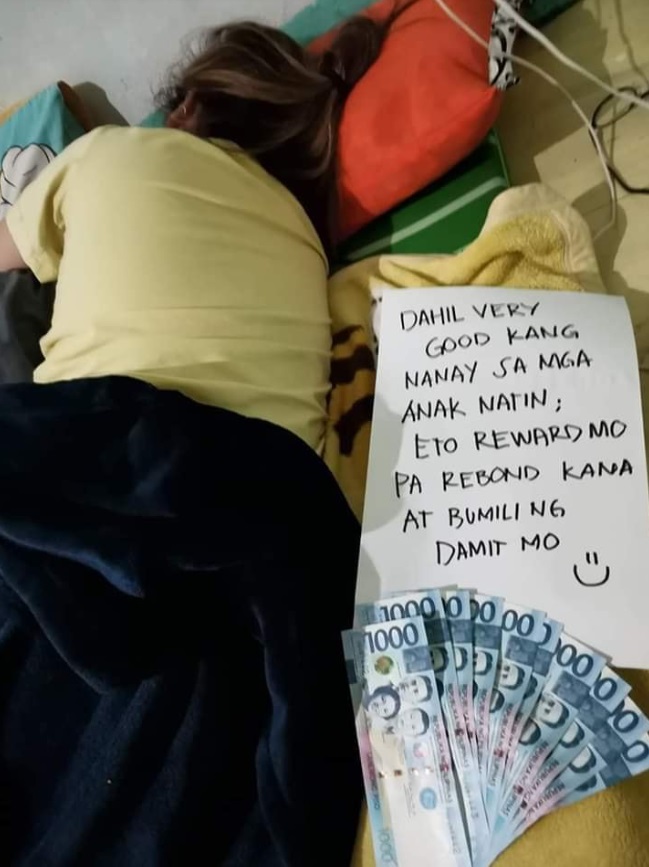 DAHIL VERY
GOOD KANG
NANAY SA MGA
ANAK NATIN;
ETO REWARD MO
PA REBOND KANA
AT BUMILI NG
DAMIT MO
1000
1000
1000